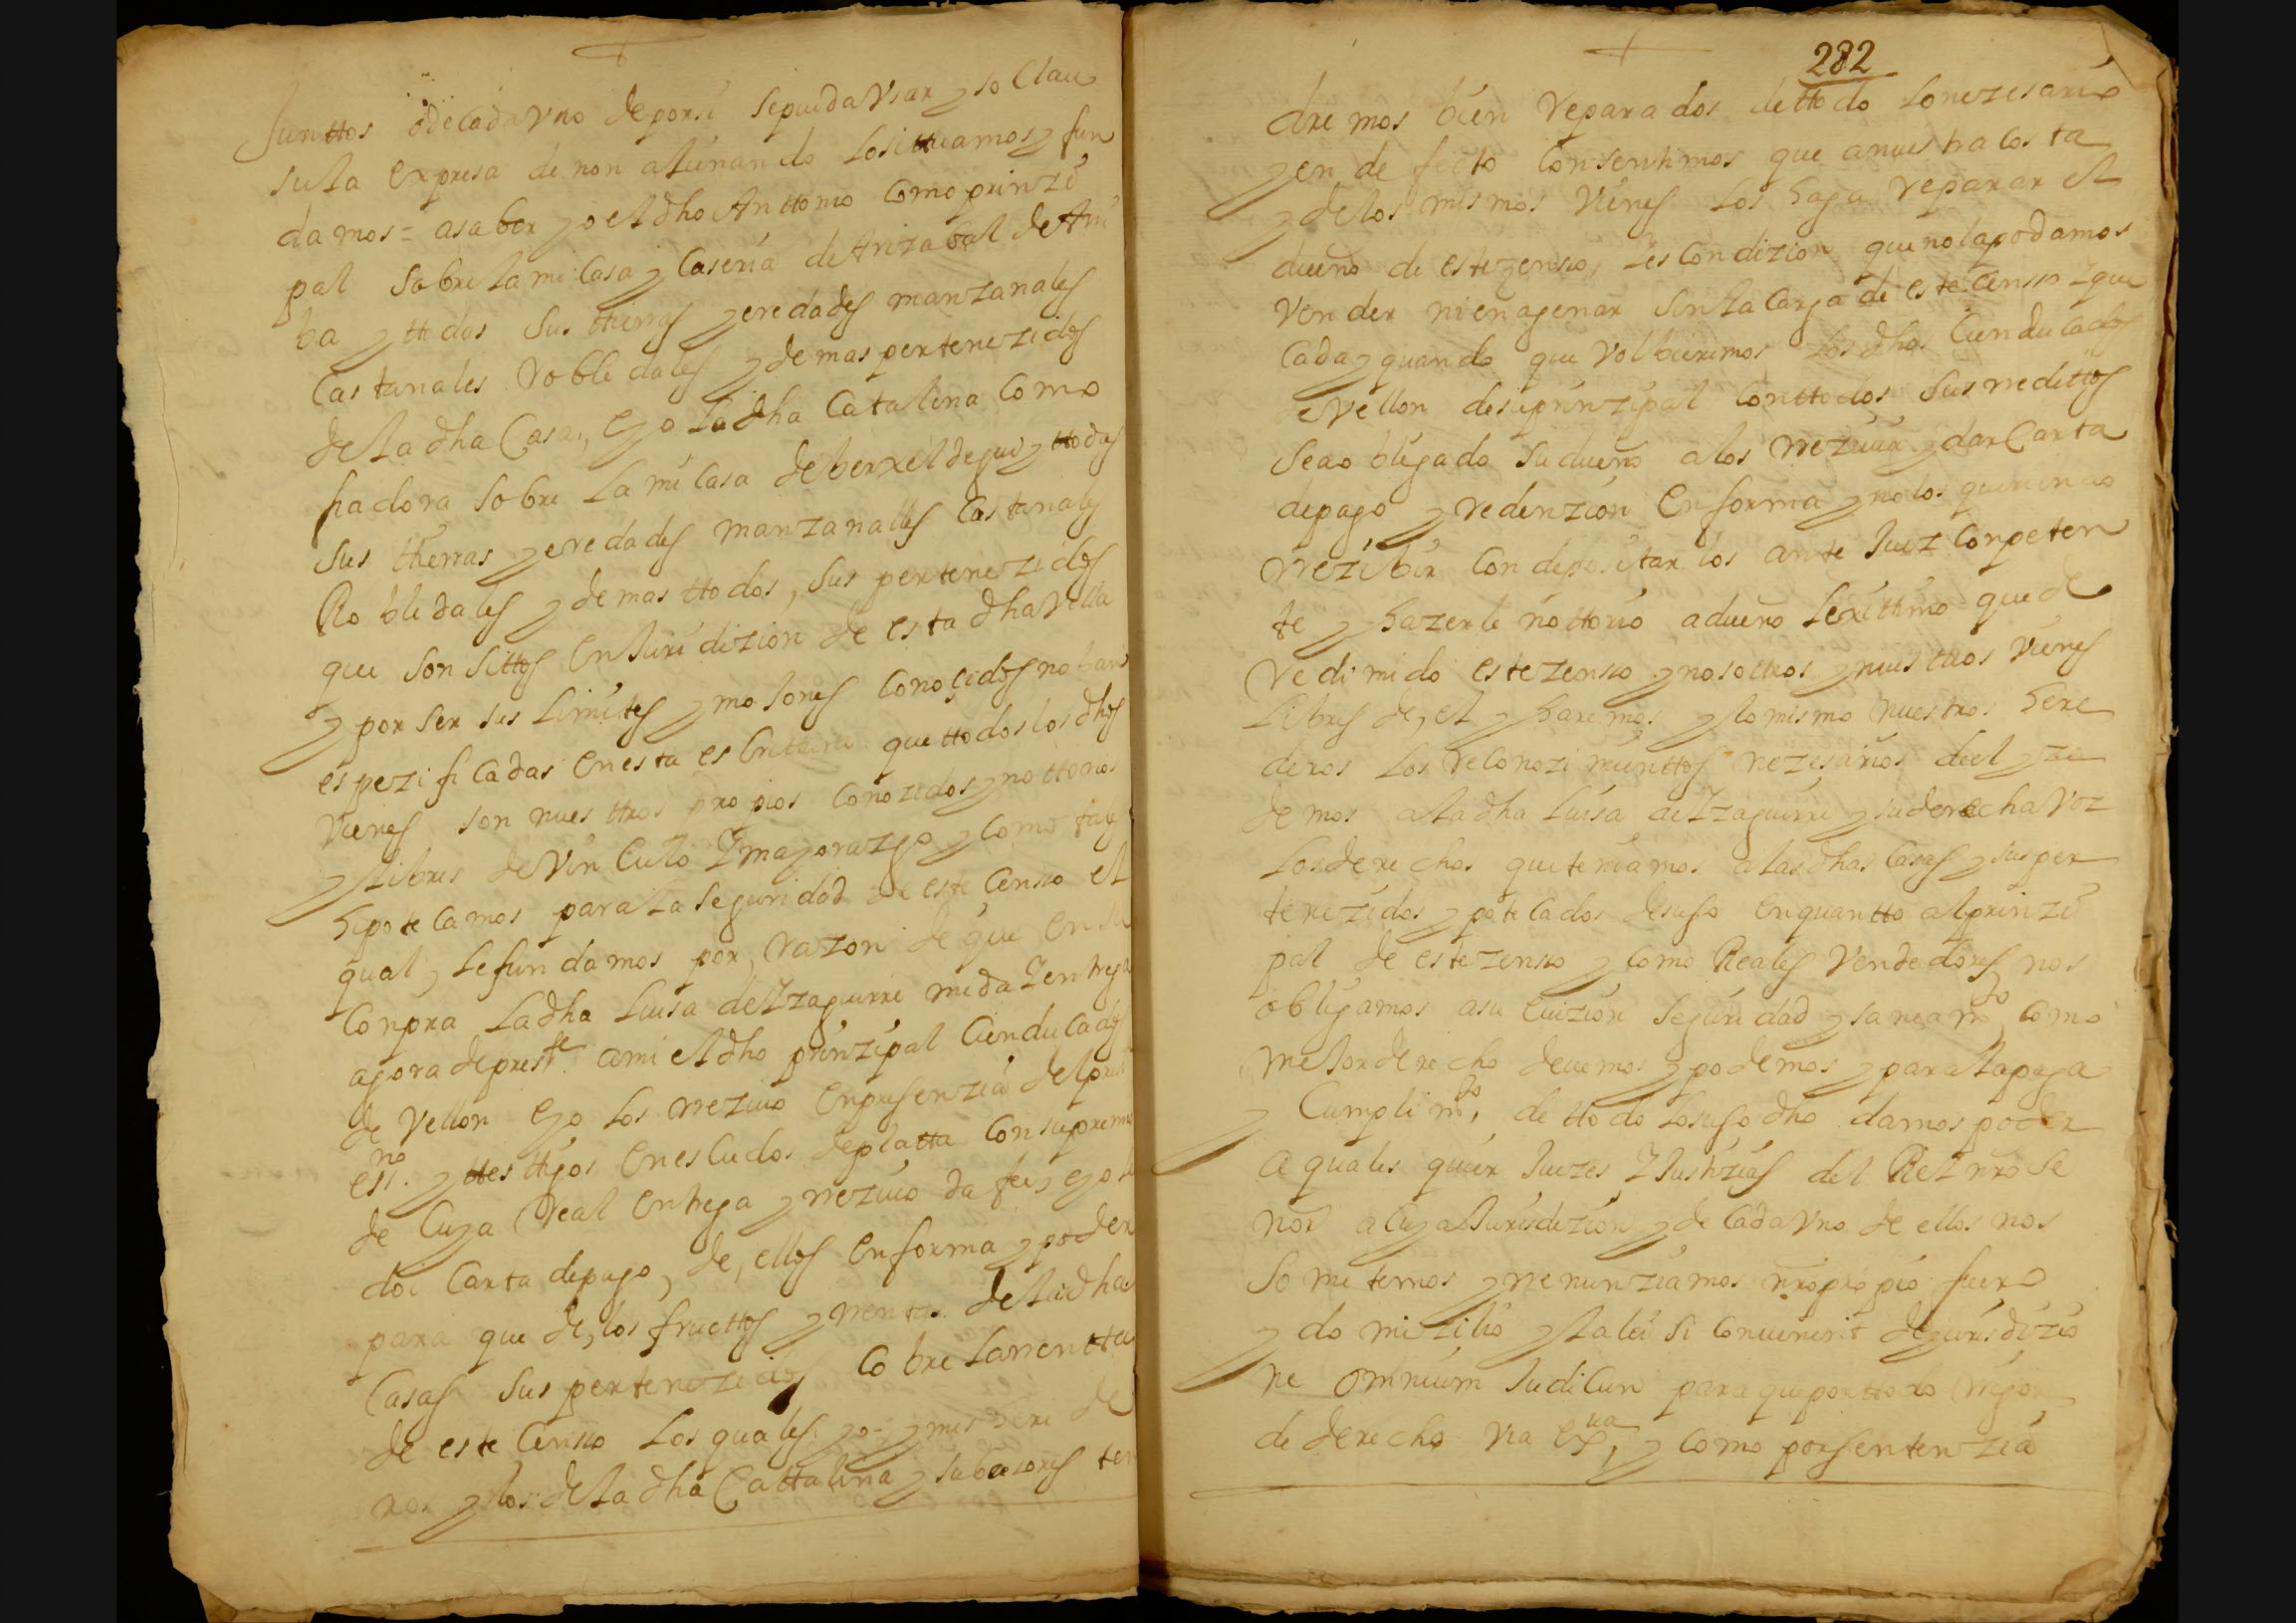 Junttos o de cada vno de por si se pueda vsar y so clau
sula expresa de non alienando lo sittuamos y fun
damos = a saber yo el dho Anttonio como prinzi
pal sobre la mi casa y caseria de Arizabal de Arri
ba y ttodas sus tthierras y eredades manzanales
castanales robledales y demas pertenezidos
de la dha casa, e yo la dha Catalina como
fiadora sobre la mi casa de y ttodas
sus thierras y eredades manzanalles castanales
Robledales y demas ttodos, sus pertenezidos
que son sittos en Juridizion de esta dha villa
y por ser sus limites y mojones conoçidos no ban
espezificadas en esta escrittura que ttodos los dhos
vienes son nuesttros propios conozidos y nottorios
y libres de vinculo y mayorazgo y como tales
hipotecamos para la seguridad de este censo el
qual, le fundamos por, razon de que en su
conpra la dha Luisa de Yzaguirre me da y entrega
agora de prestte. a mi el dho prinzipal cien ducados
de vellon e yo los rrezivo en presenzia del pres
esno. y ttesttigos en escudos de platta con su premio
de cuya real entrega y rrezivo da fee, e yo le
doi carta de pago, de, ellos en forma y poder
para que de, los fructtos y rrentas de las dhas
casas sus pertenezidos cobre la rrentta
de este censo los quales yo y mis here de
ros y los de la dha Cattalina y subcesores ten
282
dremos bien reparados de ttodo lo nezesario
y en defecto consentimos que a nuestra costa
y de los mismos vienes los haga reparar el
dueño de este zenso, y es condizion que no la podamos
vender ni enagenar sin la carga de este censo y que
cada y quando que volbieremos los dhos cien ducados
de vellon de su prinzipal con ttodos sus rredittos
sea obligado su dueño a los rrezivir y dar carta
de pago y redenzion en forma y no los queriendo
rrezibir con depositarlos ante Juez conpeten
te y hazerle nottorio a dueño lexittimo quede
redimido este zenso y nosottros y nuesttros vienes
libres de, el y haremos y lo mismo nuestros here
deros los reconozimienttos nezesarios de el y ze
demos a la dha Luisa de Yzaguirre y su derecha voz
los derechos que teniamos a las dhas casas y sus per
tenezidos ypotecados de suso en quantto al prinzi
pal de este zenso y como Reales vendedores nos
obligamos a su evizion seguridad y saneamto como
mejor de derecho devemos y podemos y para la paga
y cumplimto, de ttodo lo suso dho damos poder
a quales quier Juezes y Justizias del Rei nro Se
nor a cuya Jurisdizion y de cada vno de ellos nos
sometemos y rrenunziamos nro propio fuero
y domizilio y la lei si convenerit de jurisdizio
ne omnium Judicun para que por ttodo rrigor
de derecho via exua, y como por sentenzia